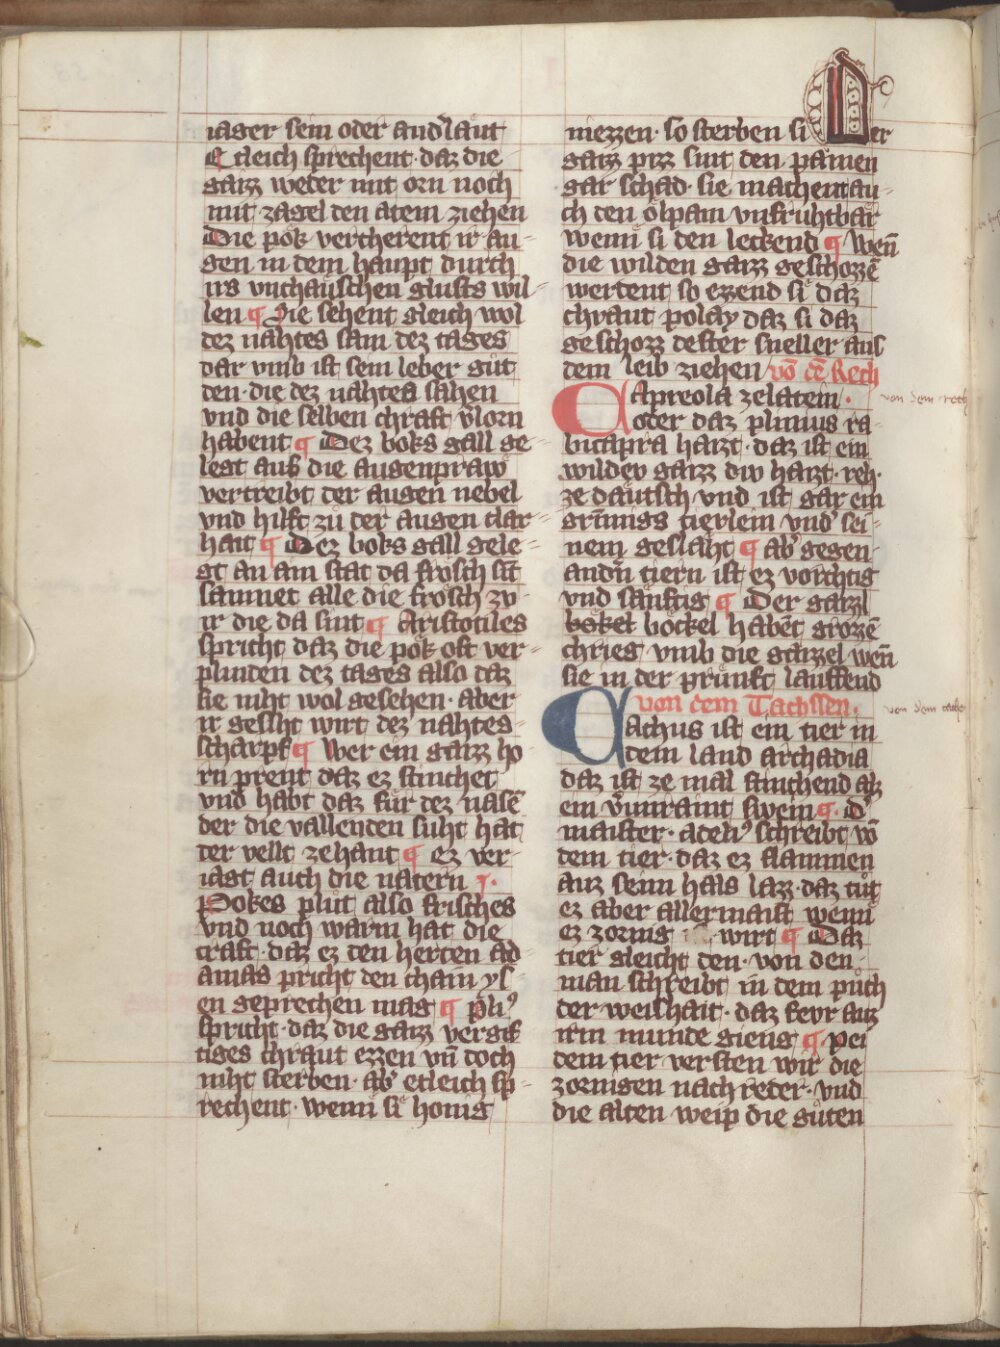 iager sein oder and' laͤut
¶ Etleich sprechent · daz die
gaizz weder mit orn noch
mit zagel den atem ziehen
Die poͤk vercherent ir au-
gen in dem haupt durch
irs vnchaͤuschen glusts wil-
len ¶ Die sehent gleich wol
dez nahtes sam dez tages
dar vmb ist sein leber guͦt
den · die dez nahtes sahen
vnd die selben chraft v'lorn
habent ¶ Dez boks gall ge
legt auf die augenpraw
vertreibt der augen nebel
vnd hilft zuͦ der augen clar-
hait ¶ Dez boks gall gele-
gt an ain stat da frosch sīt
samnet alle die frosch zv
ir die da sint ¶ Aristotiles
spricht daz die poͤk oft ver-
plinden dez tages also daz
sie niht wol gesehen · aber
ir gesiht wirt dez nahtes
scharpf ¶ wer ein gaizz ho
rn prent daz ez stinchet
vnd habt daz fuͤr dez nasē
der die vallenden suht hat
der vellt zehant ¶ ez ver-
iagt auch die natern
Pokes pluͦt also frisches
vnd noch warm hat die
craft · daz ez den herten ad
amas pricht den chain ys-
en geprechen mag ¶ pli'
spricht · daz die gaizz vergif
tiges chraut ezzen vn̄ doch
niht sterben · ab' etleich sp-
rechent · wenn si honig
niezzen · so sterben si Der
gaizz pizz sint den paͤmen
gar schad · sie machent au-
ch den oͤlpaim vnfruhtbaͤr
wenn si den leckend ¶ Wen̄
die wilden gaizz geschozzē
werdent so ezzend si daz
chraut polay daz si daz
geschozz dester sneller aus
dem leib ziehen vō dē Rech
Capreola zelatein ·
von dem rech
oder daz plinius ca-
bicapra haizt · daz ist ein
wildev gaizz div haizt · reh ·
ze daͤutsch vnd ist gar ein
grīmigs tierlein vnd' sei-
nem geslaͤht ¶ ab' gegen
andn̄ tiern ist ez vorchtig
vnd saͤnftig ¶ Der gaizzl
boͤkel bockel habēt grozzē
chrieg vmb die gaizzel wen̄
sie in der pruͤnft lauffend
von dem Tachssen ·
von dem tachs
Cachus ist ein tier in
dem land archadia
daz ist ze mal stinchend als
ein v'unraint swein ¶ D'
maister · adeli' schreibt vō
dem tier · daz ez flammen
auz seim hals lazz · daz tuͦt
ez aber allermaist wenn
ez zornig wirt ¶ Daz
tier gleicht den · von den
man schreibt in dem puͦch
der weishait · daz fevr auz
irm munde gieng ¶ pei
dem tier versten wir die
zornigen nachreder · vnd
die alten weip die guͦten